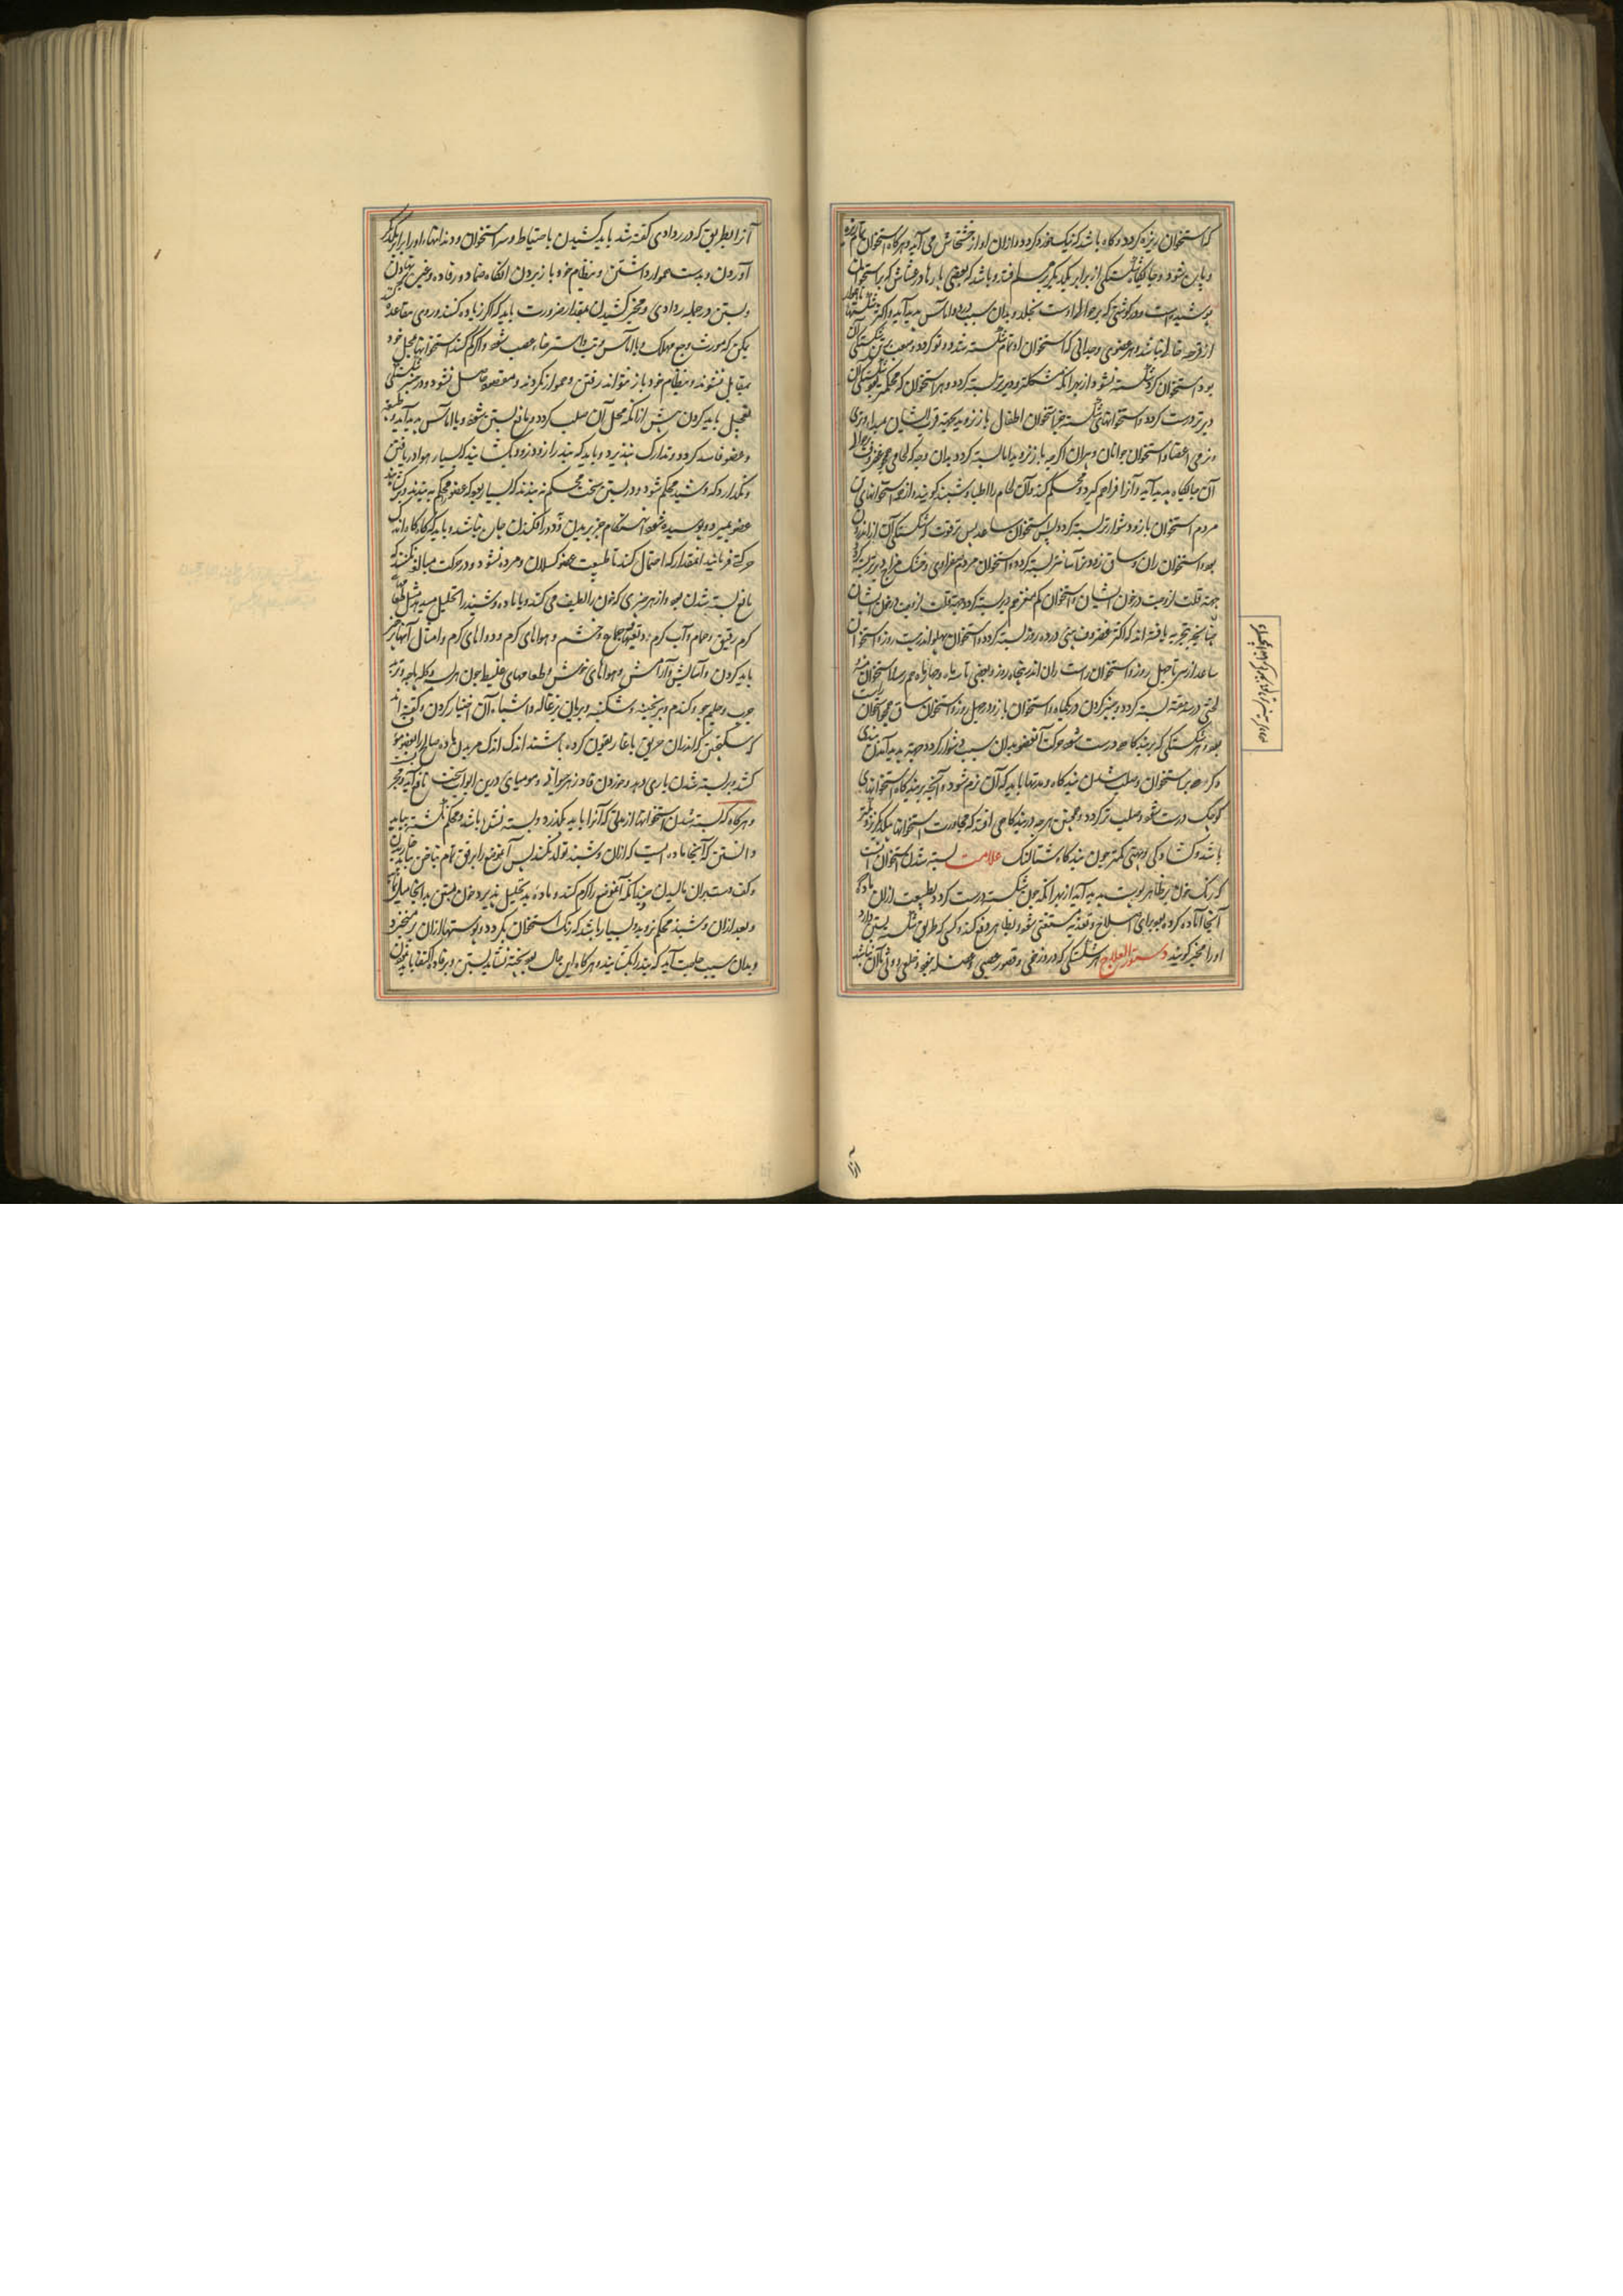 که استخوان ریزه گردد و گاه باشد که نیک خورد گردد و ازان آواز خشخاش می آید و هرگاه استخوان
و باین شود و جایگاه شکستگی از برابر یکدیگر افتد و باشد که بعضی پارها در غشائش که بر استخوان
پوشیده است و در گوشتی که بر حوالی اوست بخلد و بدان سبب درد و اماس پدید آید و اکثر
از قرحه خالی نباشد و هر عضوی وحدانی که استخوان او تمام شکسته شد دوتو گردد و صعب ترین شکستگی آن
بود استخوان گرد شکسته نشود از بهر آنکه مشکلتر و دیرتر بسته گردد و هر استخوان که محکم تر بود شکستگی آن
دیرتر درست گردد و استخوانهای شکسته جز استخوان اطفال باز نروید بجهة قرب ایشان بمبداء و نرمی
و نرمی اعضا و استخوان جوانان و پیران اگرچه باز نروید اما بسته گردد بدان وجه که لحامی همچو غضروف
آن جایگاه پدید آید و آنرا فراهم گیرد و محکم کند و آن لحام را اطبا وشبند گویند و از جمله استخوانهای
مردم استخوان بازو دشوارتر بسته گردد پس استخوان ساعد پس ترقوت که شکستگی آن از اندرون
بود و استخوان ران و ساق زودتر و آسانتر بسته گردد و استخوان مردم صفراوی و خشک مزاج دیرتر بسته گردد
بجهة قلت لزوجت در خون ایشان و استخوان کم مغز هم دیر بسته گردد بجهة قلت لزوجت در خون ایشان
چنانچه بتجربه یافته اند که اکثر غضروف بینی در ده روز بسته گردد و استخوان پهلو اندر بیست روز و استخوان
ساعد از سی تا چهل روز و استخوان راست ران اندر پنجاه روز و بعضی تا سه ماه و چهار ماه هم رسد و استخوان
لحیی در سه هفته بسته گردد و چنبر گردن در یک ماه و استخوان بازو در چهل روز و استخوان ساق همچو استخوان
بود و هر شکستگی که بر بندگاه بود درست شود حرکت آن عضو بدان سبب دشوار گردد بجهة پدید آمدن
و گره بر استخوان و صلب شدن بندگاه و مدتها باید که آن نرم شود و آنچه بر بندگاه استخوانهای
کوچک درست شود صلب تر گردد و همچنین هرچه در بندگاهی افتد که مجاورت استخوانها بیکدیگر نزدیکتر
باشد و گشادگی او بهیئتی کمتر چون بندگاه شتالنگ علامت بسته شدن استخوان آنست
که رنگ خون بر ظاهر پوست پدید آید از بهر آنکه چون شکسته درست گردد طبیعت ازان ماده که
آنجا آماده کرده بود برای اصلاح و تغذیه مستغنی شود و بظاهر دفع کند و کسی که طریق شکسته بستن داند
او را مجبر گویند دستور العلاج هر شکستگی که در و زخمی و قصور عصبی و عضله نبود و خلعی و وثی با آن نباشد
آنرا
آنرا بطریق که در رد وادی گفته شد باید کشیدن باحتیاط و سر استخوان و دندانهاء او را برابر یکدیگر
آوردن و بدست هموار داشتن و بنظام خود باز بردن انگاه ضماد و رفاده و غیره
و بستن و در جمله رد وادی و مجبر کشیدن بمقدار ضرورت باید که اگر زیاده کنند در وی مقاعد
یکی که مورث وجع مهلک و یا اماس و تب و استرخاء عصب شود و اگر کم کنند استخوانها بمحل خود
مقابل نشوند و بنظام خود باز نتوانند رفتن و هموار نگردند و مقصود حاصل نشود و در جبر شکستگی
تعجیل باید کردن پیش ازانکه محل آن صلب گردد و مانع بستن شود و یا اماس پدید آید و
و عضو فاسد گردد و تدارک نپذیرد و باید که بند را زود زود بگشایند که بسیار هوا دریافتن
و نگذارد که وشبد محکم شود و در بستن سخت محکم نه بندند که بسیار بود که عضو محکم به بندند و
عضو بمیرد و پوسیده شود و بهنگام جز بریدن و دور افگندن چاره نباشد و باید که گاه گاه اندک
حرکتی فرمایند آنمقدار که احتمال کند تا طبیعت عضو کسلان و مرده نشود و در حرکت مبالغه نکنند که
مانع بسته شدن بود و از هر چیزی که خون را لطیف می کند و یا ماده وشبد را تحلیل میدهد مثل طعامهاء
گرم رقیق و حمام و آب گرم و تعبها و جماع و خشم و هواهای گرم و دواهای گرم و امثال آنها پرهیز
باید کردن و آسایش و آرامش و هواهای خوش و طعامهای غلیظ چون هریسه و کله پاچه و ثرید
چرب و حلیم جو و گندم و برنجینه و شکنبه و بریان بزغاله و اشباه آن اختیار کردن و گفته اند
که سکنجبین که اندران خربق با غاریقون کرده باشند اندک اندک هر بدن ماده صالح را بعضو مؤف
کشد و بر بسته شدن یاری دهد و خوردن فادزهر حیوانی و مومیائی درین ابواب سخت نافع آید و مجرب
و هرگاه که بسته شدن استخوانها از مدتی که آنرا باید بگذرد و بسته نشده باشد و محکم نگشته بباید
دانستن که آنجا ماده نیست که ازان وشبد تولد کند پس آن موضع را برفق تمام بناخن
و کف دست بران مالیدن چنانکه آن موضع را گرم کند و ماده بد تحلیل پذیرد و خون بستن بدانجا میل نماید
و بعد ازان وشبد محکم تر روید و بسیار باشد که رنگ استخوان بگردد و پوستها ازان بر میخیزد
و بدان سبب حاجت آید که بند را بگشایند و هرگاه این حال بود پخته نشاید بستن و بر رفاده اکتفا باید نمودن